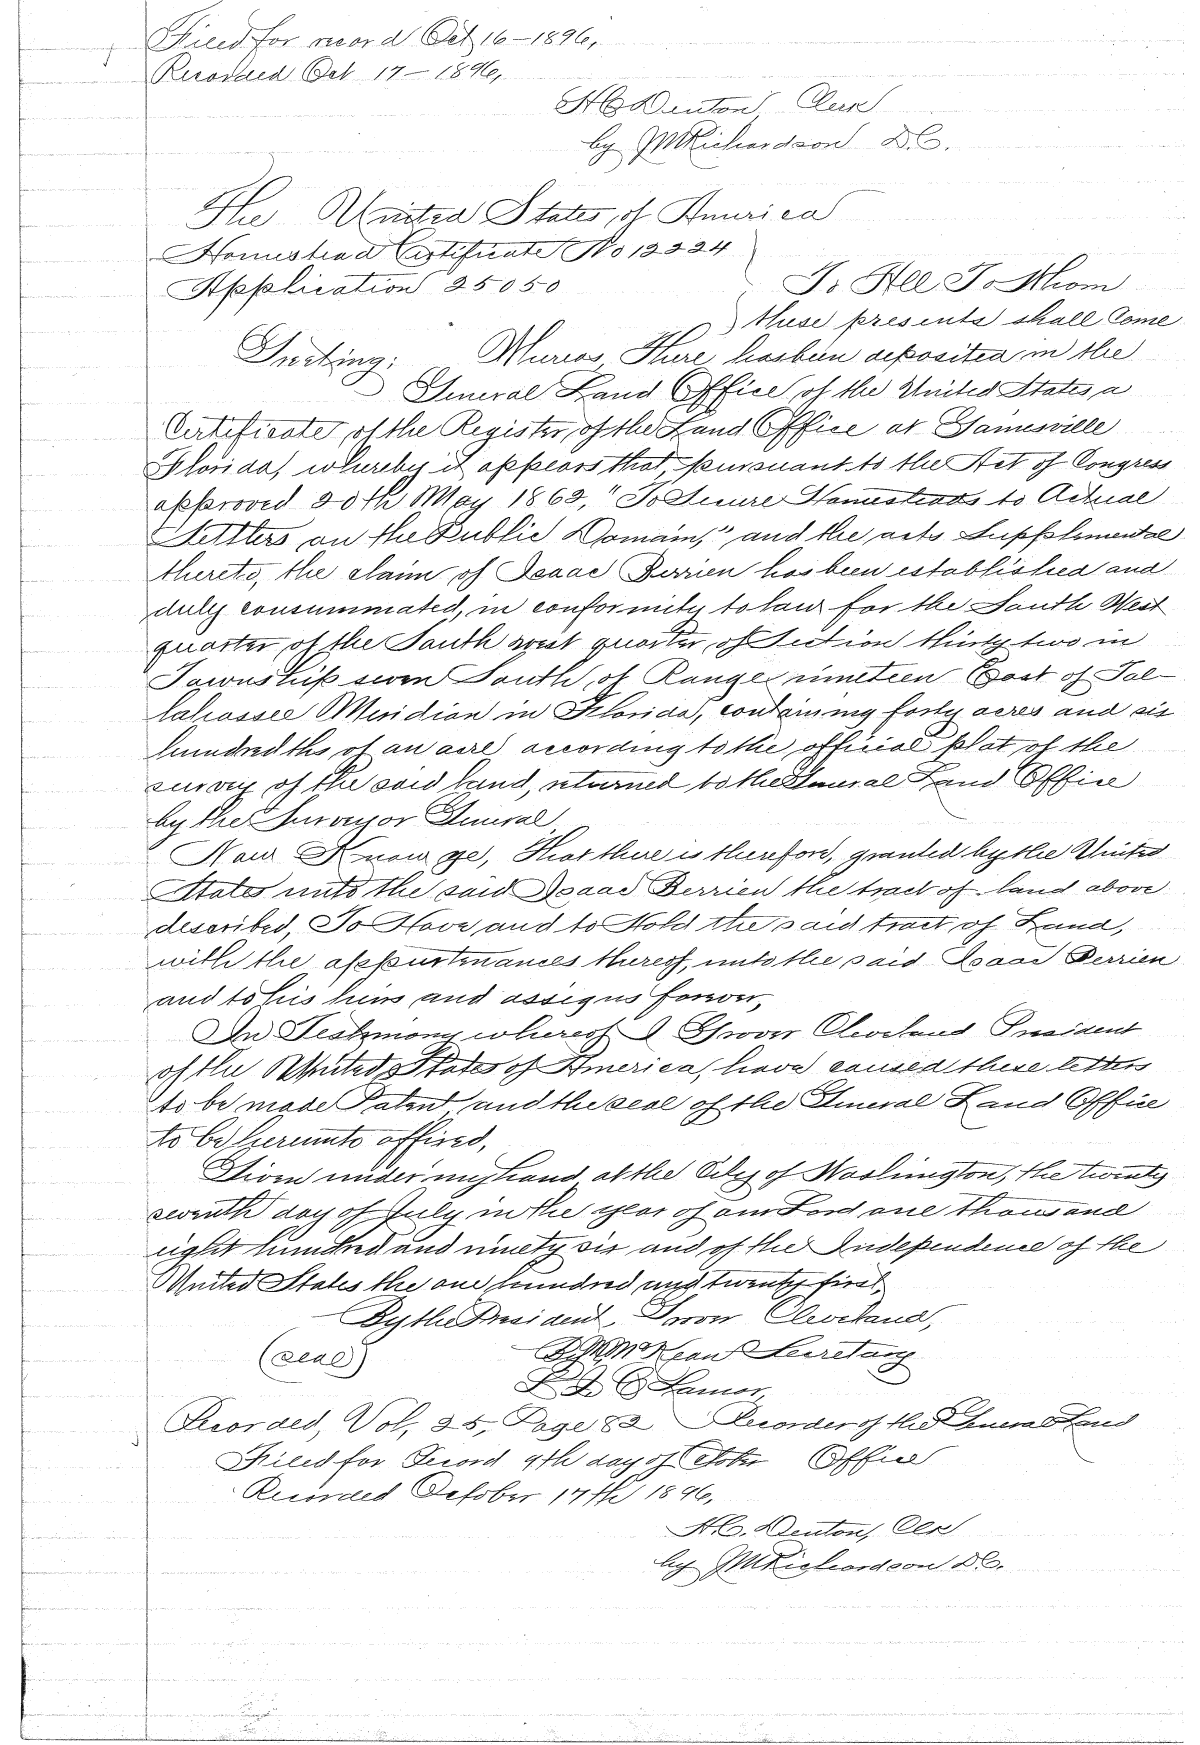 Filed for record Oct 16 - 1896,
Recorded Oct 17 - 1896,
H C Denton Clerk
by J M Richardson D.C.
The United States, of America
Homestead Certificate No 12224
Application 25050
To All To Whom
these presents shall Come
Greeting: Whereas There hasbeen deposited in the
General Land Office of the United States a
Certificate of the Register, of the Land Office at Gainesville
Florida, whereby it appears that, pursuant to the Act of Congress
approved 20th May 1862, "To Secure Homesteads to Actual
Settlers on the Public Domain," and the acts Supplemental
thereto, the claim of Isaac Berrien has been established and
duly consummated, in conformity to law for the South West
quarter of the South west quarter, of Section thirty two in
Township seven South, of Range nineteen East of Tal-
lahassee Meridian in Florida, containing forty acres and six
hundredths of an acre according to the official plat, of the
survey of the said land, returned to the General Land Office
by the Surveyor General
Now Know ye, That there is therefore, granted by the United
States unto the said Isaac Berrien the tract of land above
described, To Have, and to Hold the said tract of Land,
with the appurtenances thereof, unto the said Isaac Berrien
and to his heirs and assigns forever,
In Testimony whereof I Grover Cleveland President
of the United States of America, have caused these letters
to be made Patent, and the seal of the General Land Office
to be hereunto affixed,
Given under my hand at the City of Washington, the twenty
seventh day of July in the year of our Lord one thousand
eight hundred and ninety six and of the Independence of the
United States the one hundred and twenty first,
By the President, Grover Cleveland,
(seal) By M McKean Secretary
L Q C Lamar,
Recorded, Vol, 25, Page 82 Recorder of the General Land
Filed for Record 9th day of Office
Recorded October 17th 1896,
H C. Denton, Clk
by J M Richardson D C.